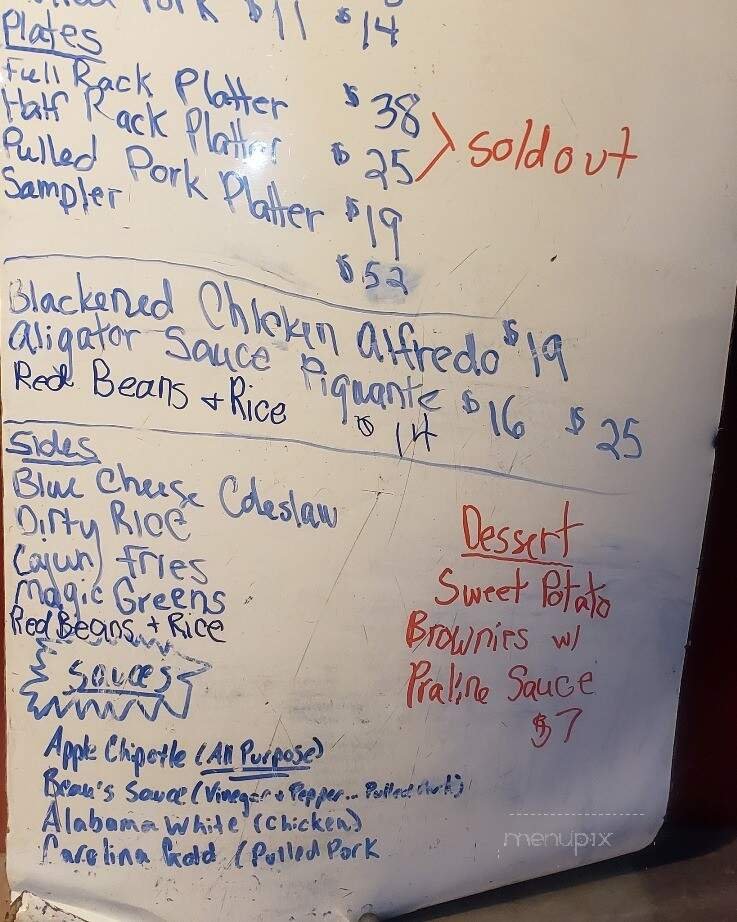 Pork $11 $14
Plates
Full Rack Platter $38
Half Rack Platter $25
Sold out
Pulled Pork Platter $19
Sampler $52
Blackened Chicken Alfredo $19
Aligator Sauce Piquante $16 $25
Red Beans + Rice $14
Sides
Blue Cheese Coleslaw
Dirty Rice
Cajun Fries
Magic Greens
Red Beans + Rice
Dessert
Sweet Potato
Brownies w/
Praline Sauce
$7
Sauces
Apple Chipotle (All Purpose)
Beau's Sauce (Vinegar + Pepper... Pulled Pork)
Alabama White (Chicken)
Carolina Gold (Pulled Pork
menupix